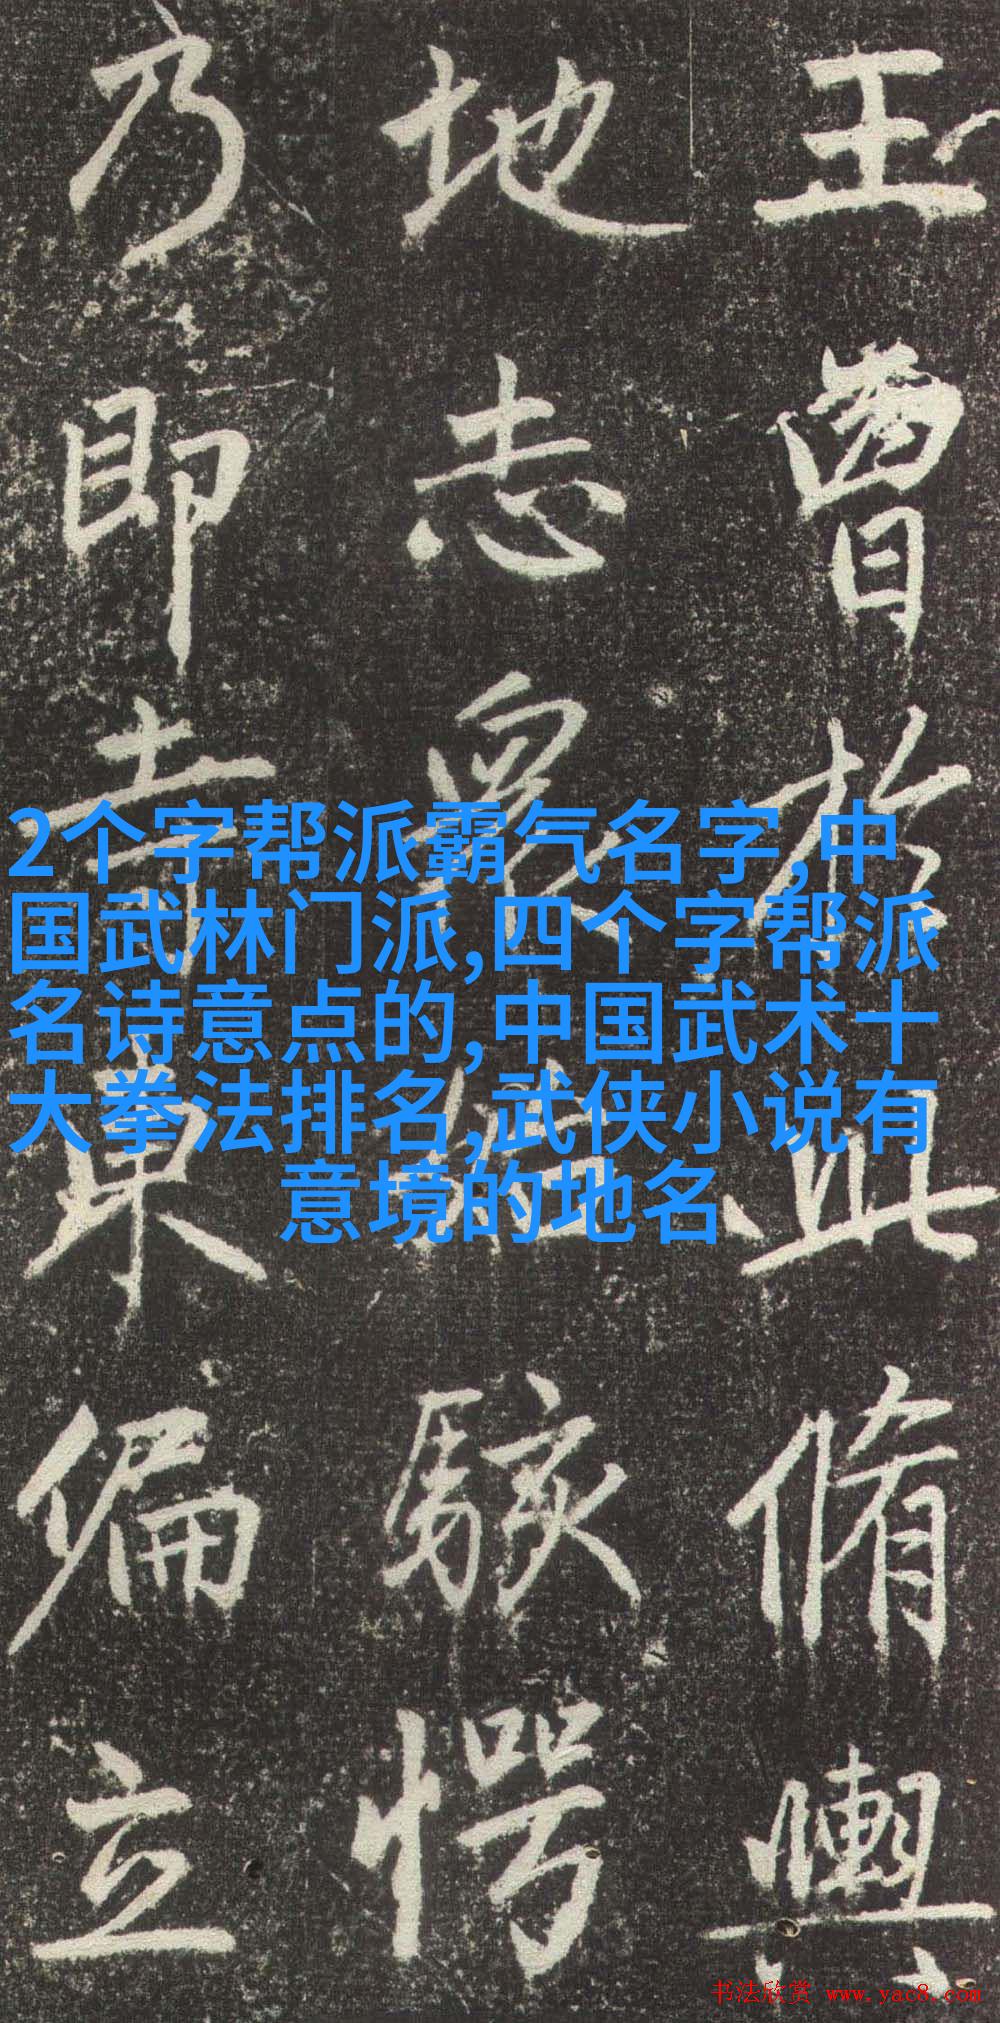 王曾於此脩輿
地志眾駭愕
乃即寺東偏立
2个字帮派霸气名字,中
国武林门派,四个字帮派
名诗意点的,中国武术十
大拳法排名,武侠小说有
意境的地名
书法欣赏 www.yac8.com